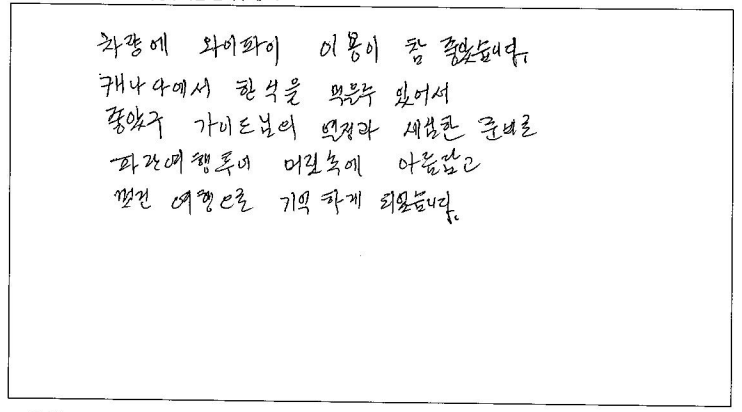 차량에 와이파이 이용이 참 좋았습니다.
캐나다에서 한식을 먹을수 있어서
좋았구 가이드님의 열정과 세심한 준비로
파란여행투어 머릿속에 아름답고
멋진 여행으로 기억 하게 되었습니다.